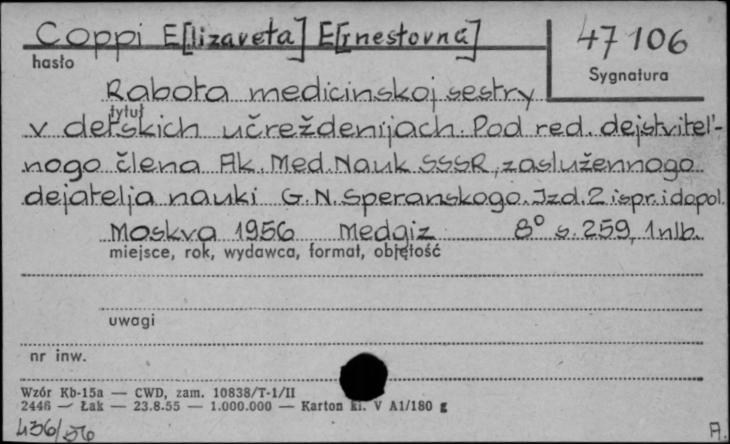 Coppi E[lizaveta] E[rnestovna]
47 106
hasło
Sygnatura
Rabota medicinskoj sestry
tytuł
v detskich učreždenijach. Pod red. dejstvitel'-
nogo člena Ak. Med. Nauk SSSR, zasłužennogo
dejatelja nauki G.N. Speranskogo. Izd. 2 ispr. i dopol.
Moskva 1956 Medgiz 8° s. 259, 1 nlb.
miejsce, rok, wydawca, format, objętość
uwagi
nr inw.
Wzór Kb-15a — CWD, zam. 10838/T-1/II
2446 — Łak — 23.8.55 — 1.000.000 — Karton kl. V A1/180 g
436/56
A.